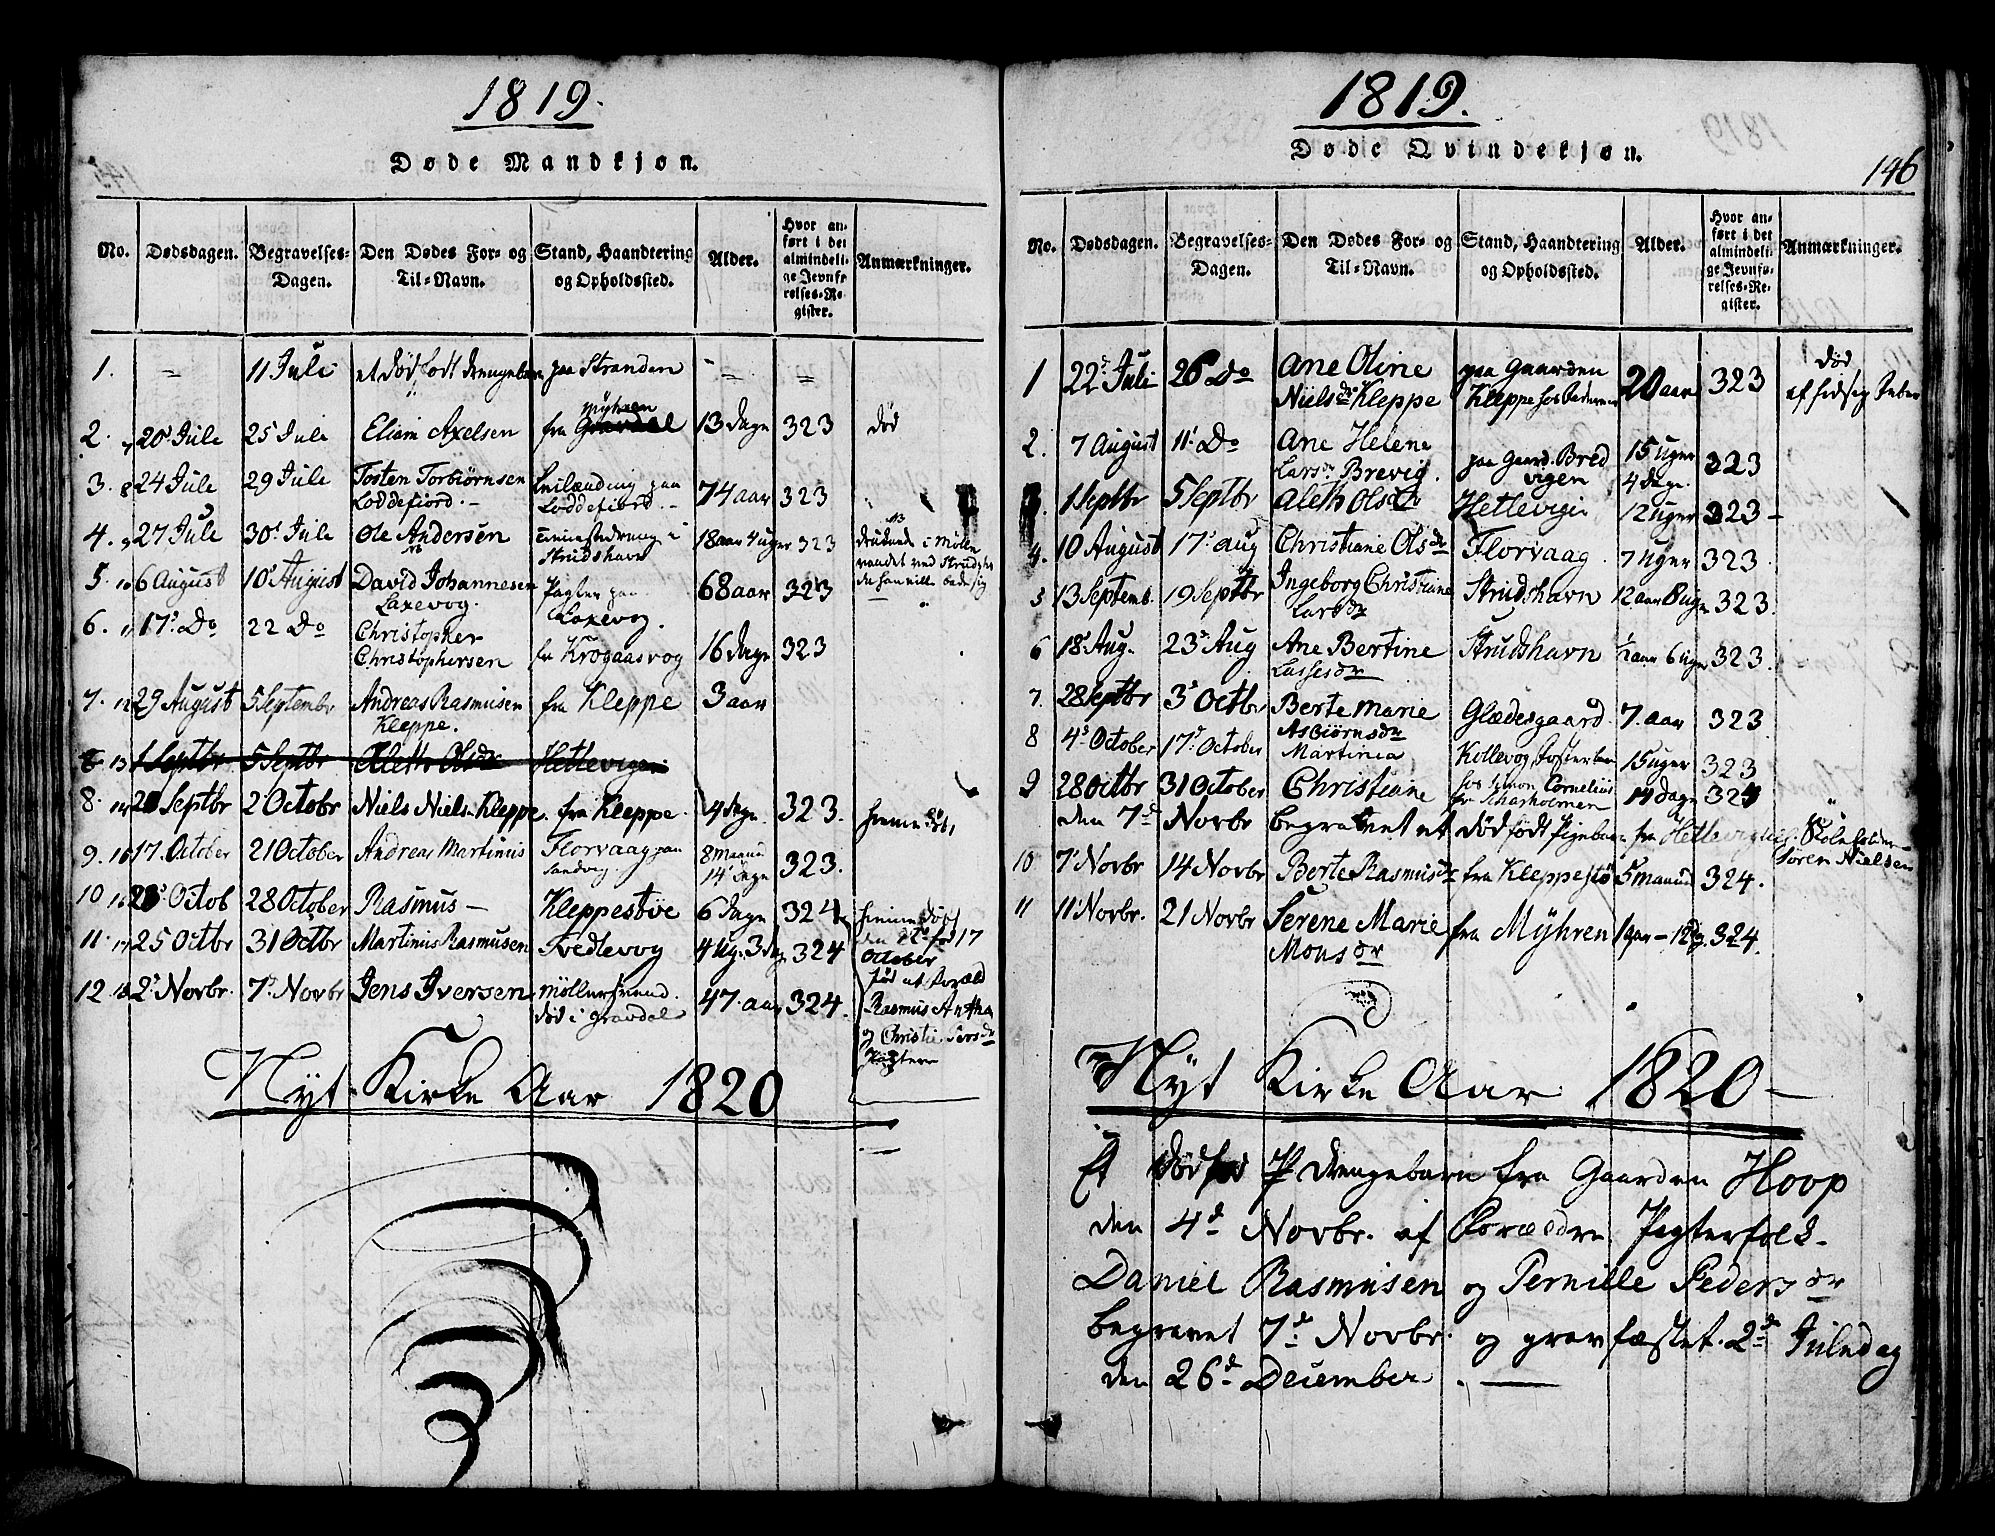 1819.
Døde Mandkjøn.
No. Dødsdagen. Begravelses-Dagen. Den Dødes For- og Til-Navn. Stand, Haandtering og Opholdssted. Alder. Hvor anført i det almindelige Jevnførelses-Register. Anmærkninger.
1. = 11 Juli et dødfødt drengebarn paa Stranden = =
2. 7 20 Jule 25 Jule Eliam Axelsen fra Myhren 13 dage 323 død
3. 8 24 Jule 29 Jule Tosten Torbiørnsen
Loddefiord. paa Loddefiord. 74 aar 323
4. 9 27 Jule 30 Jule Ole Andersen i
Strudshavn 18 aar 4 uger 323 druknede i Mølle
vandet ved
5. 10 6 August 10 August David Johannesen
Laxevog. Pagter paa
Laxevog. 68 aar 323
6. 11 17 Do 22 Do Christopher
Christophersen fra Krogaasvog 16 dage 323
7. 12 29 August 5 Septembr Andreas Rasmusen
Kleppe. fra Kleppe 3 aar
8 13 1 Septbr 5 Septbr Aleth Olsdr Hettevigen
8. 14 Septbr 2 Octobr Niels Niels. Kleppe. fra Kleppe. 4 dage. 323. hiemedøbt
9. 15 17. October 21 October Andreas Martinus Florvaag paa
Sandvig 8 maaned
14 dage 323.
10 16 Octob 28 October Rasmus — Kleppestøe 6 dage 324 hiemedøbt
11. 17 25 Octbr 31 Octbr Martinus Rasmusen Fredlevog 4 Ug. 3 dag 324
October
12. 18 2 Novbr. 7 Novbr Jens Iversen
død i Gravdal 47. aar 324.
Rasmus
og Christi
Nyt Kirke Aar 1820
1819.
Døde Qvindekjøn.
146
No. Dødsdagen. Begravelses-Dagen. Den Dødes For- og Til-Navn. Stand, Haandtering og Opholdssted. Alder. Hvor anført i det almindelige Jevnførelses-Register. Anmærkninger.
1 22 Juli 26 Do Ane Oline
Nielsdr Kleppe paa Gaarden
Kleppe hos Faderen 20 aar 323 død
af hidsig Feber
2. 7 August 11 Do Ane Helene
Larsdr Brevig. paa Gaard. Bred
vigen 15 uger
4 dage. 323
3. 1 Septbr 5 Septbr Aleth Olsdr Hettevigen 12 uger 323 —
4. 10 August 17 Aug Christiane Olsdr Florvaag 7 Uger 323.
5 13 Septemb. 19 Septbr Ingeborg Christiane
Larsdr Strudshavn 12 aar 8 uger 323.
6 18 Aug. 23 Aug Ane Bertine
Lassesdr Strudshavn 1/2 aar 6 uger 323.
7. 28 Septbr 3 Octbr Berte Marie
Asbiørnsdr Glædesgaard. 7. aar 323
8 4 October 17 October Martinia Kollevog, Fosterbarn
hos Simon Cornelius 15 uger 323
9 28 Octbr 31 October Christiane fra Skarholmen 14 dage
den 7d Novbr begravet et dødfødt Pigebarn fra Hettevigen. Skoleholder
Søren Nielsen
10 7 Novbr 14 Novbr Berte Rasmusdr fra Kleppestø 5 maaned 324.
11 11 Novbr. 21 Novbr Serene Marie
Monsdr fra Myhren 1 aar — 12 dag. 324.
Nyt Kirke Aar 1820 —
Et dødfød drengebarn fra Gaarden Hoop
den 4d Novbr. af Forældre Pagterfolk
Daniel Rasmusen og Pernille Pedersdr
begravet 7d Novbr. og gravfæstet 2d Juledag
den 26d December. —